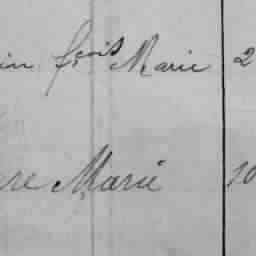 in fçois Marie 2
re Marie 10